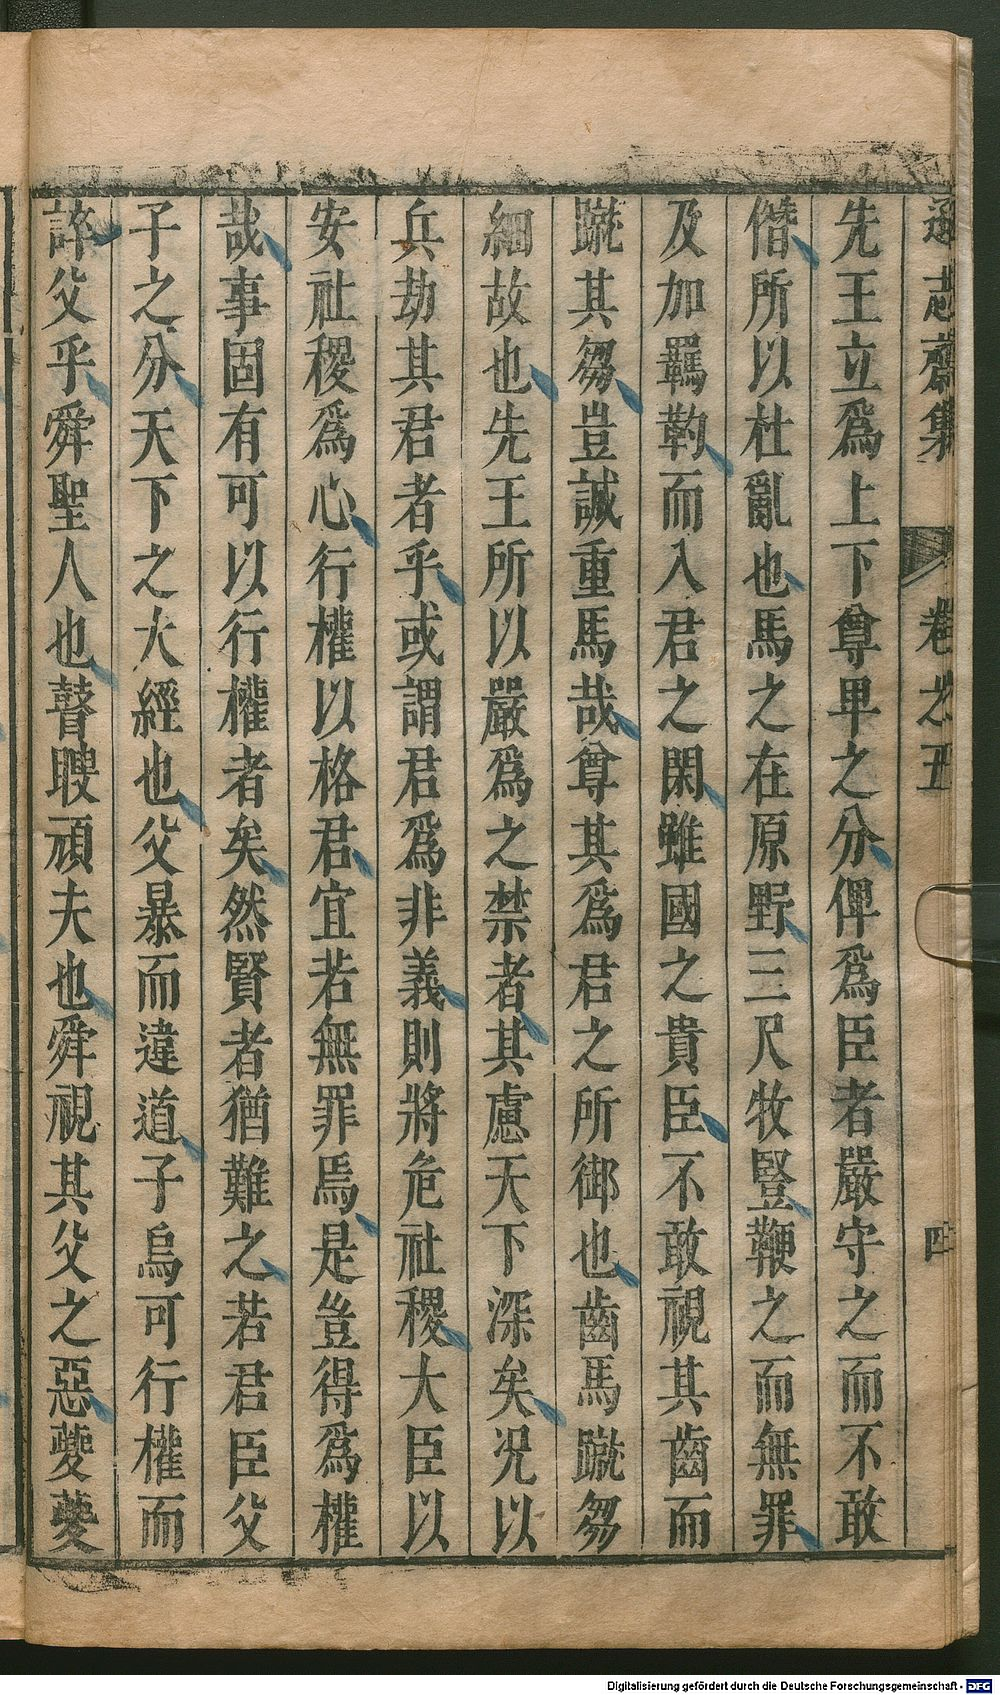 遜志齋集 卷之五 四
先王立爲上下尊卑之分俾爲臣者嚴守之而不敢
僭所以杜亂也馬之在原野三尺牧豎鞭之而無罪
及加羈靮而入君之閑雖國之貴臣不敢視其齒而
蹴其芻豈誠重馬哉尊其爲君之所御也齒馬蹴芻
細故也先王所以嚴爲之禁者其慮天下深矣况以
兵劫其君者乎或謂君爲非義則將危社稷大臣以
安社稷爲心行權以格君宜若無罪焉是豈得爲權
哉事固有可以行權者矣然賢者猶難之若君臣父
子之分天下之大經也父暴而違道子烏可行權而
誶父乎舜聖人也瞽瞍頑夫也舜視其父之惡夔夔
Digitalisierung gefördert durch die Deutsche Forschungsgemeinschaft - DFG